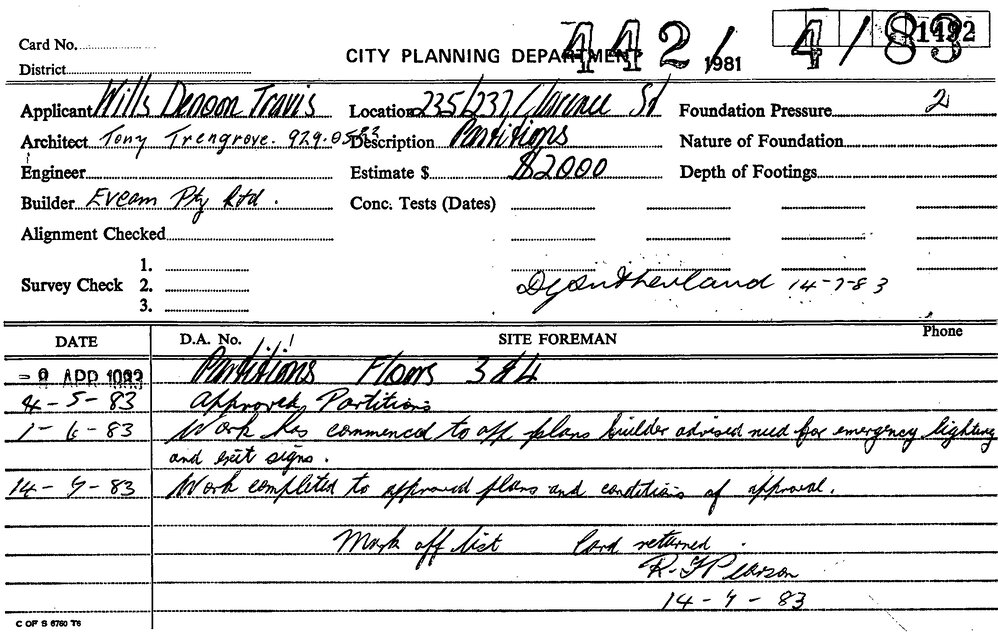 Card No.
CITY PLANNING DEPARTMENT 442/ 1981 4/83 1492
District
Applicant Wills Denoon Travis Location 235/237 Clarence St Foundation Pressure 2
Architect Tony Trengrove. 929.0583 Description Partitions Nature of Foundation
Engineer Estimate $ $2000 Depth of Footings
Builder Evcam Pty Ltd. Conc. Tests (Dates)
Alignment Checked
1.
Survey Check 2. D Sutherland 14-7-83
3.
DATE D.A. No. SITE FOREMAN Phone
Partitions Floors 3 & 4
4-5-83 Approved, Partitions
1-6-83 Work has commenced to app plans builder advised need for emergency lighting
and exit signs.
14-7-83 Work completed to approved plans and conditions of approval.
Mark off list Card returned.
R. F. Pearson
14-7-83
C OF S 6760 T6